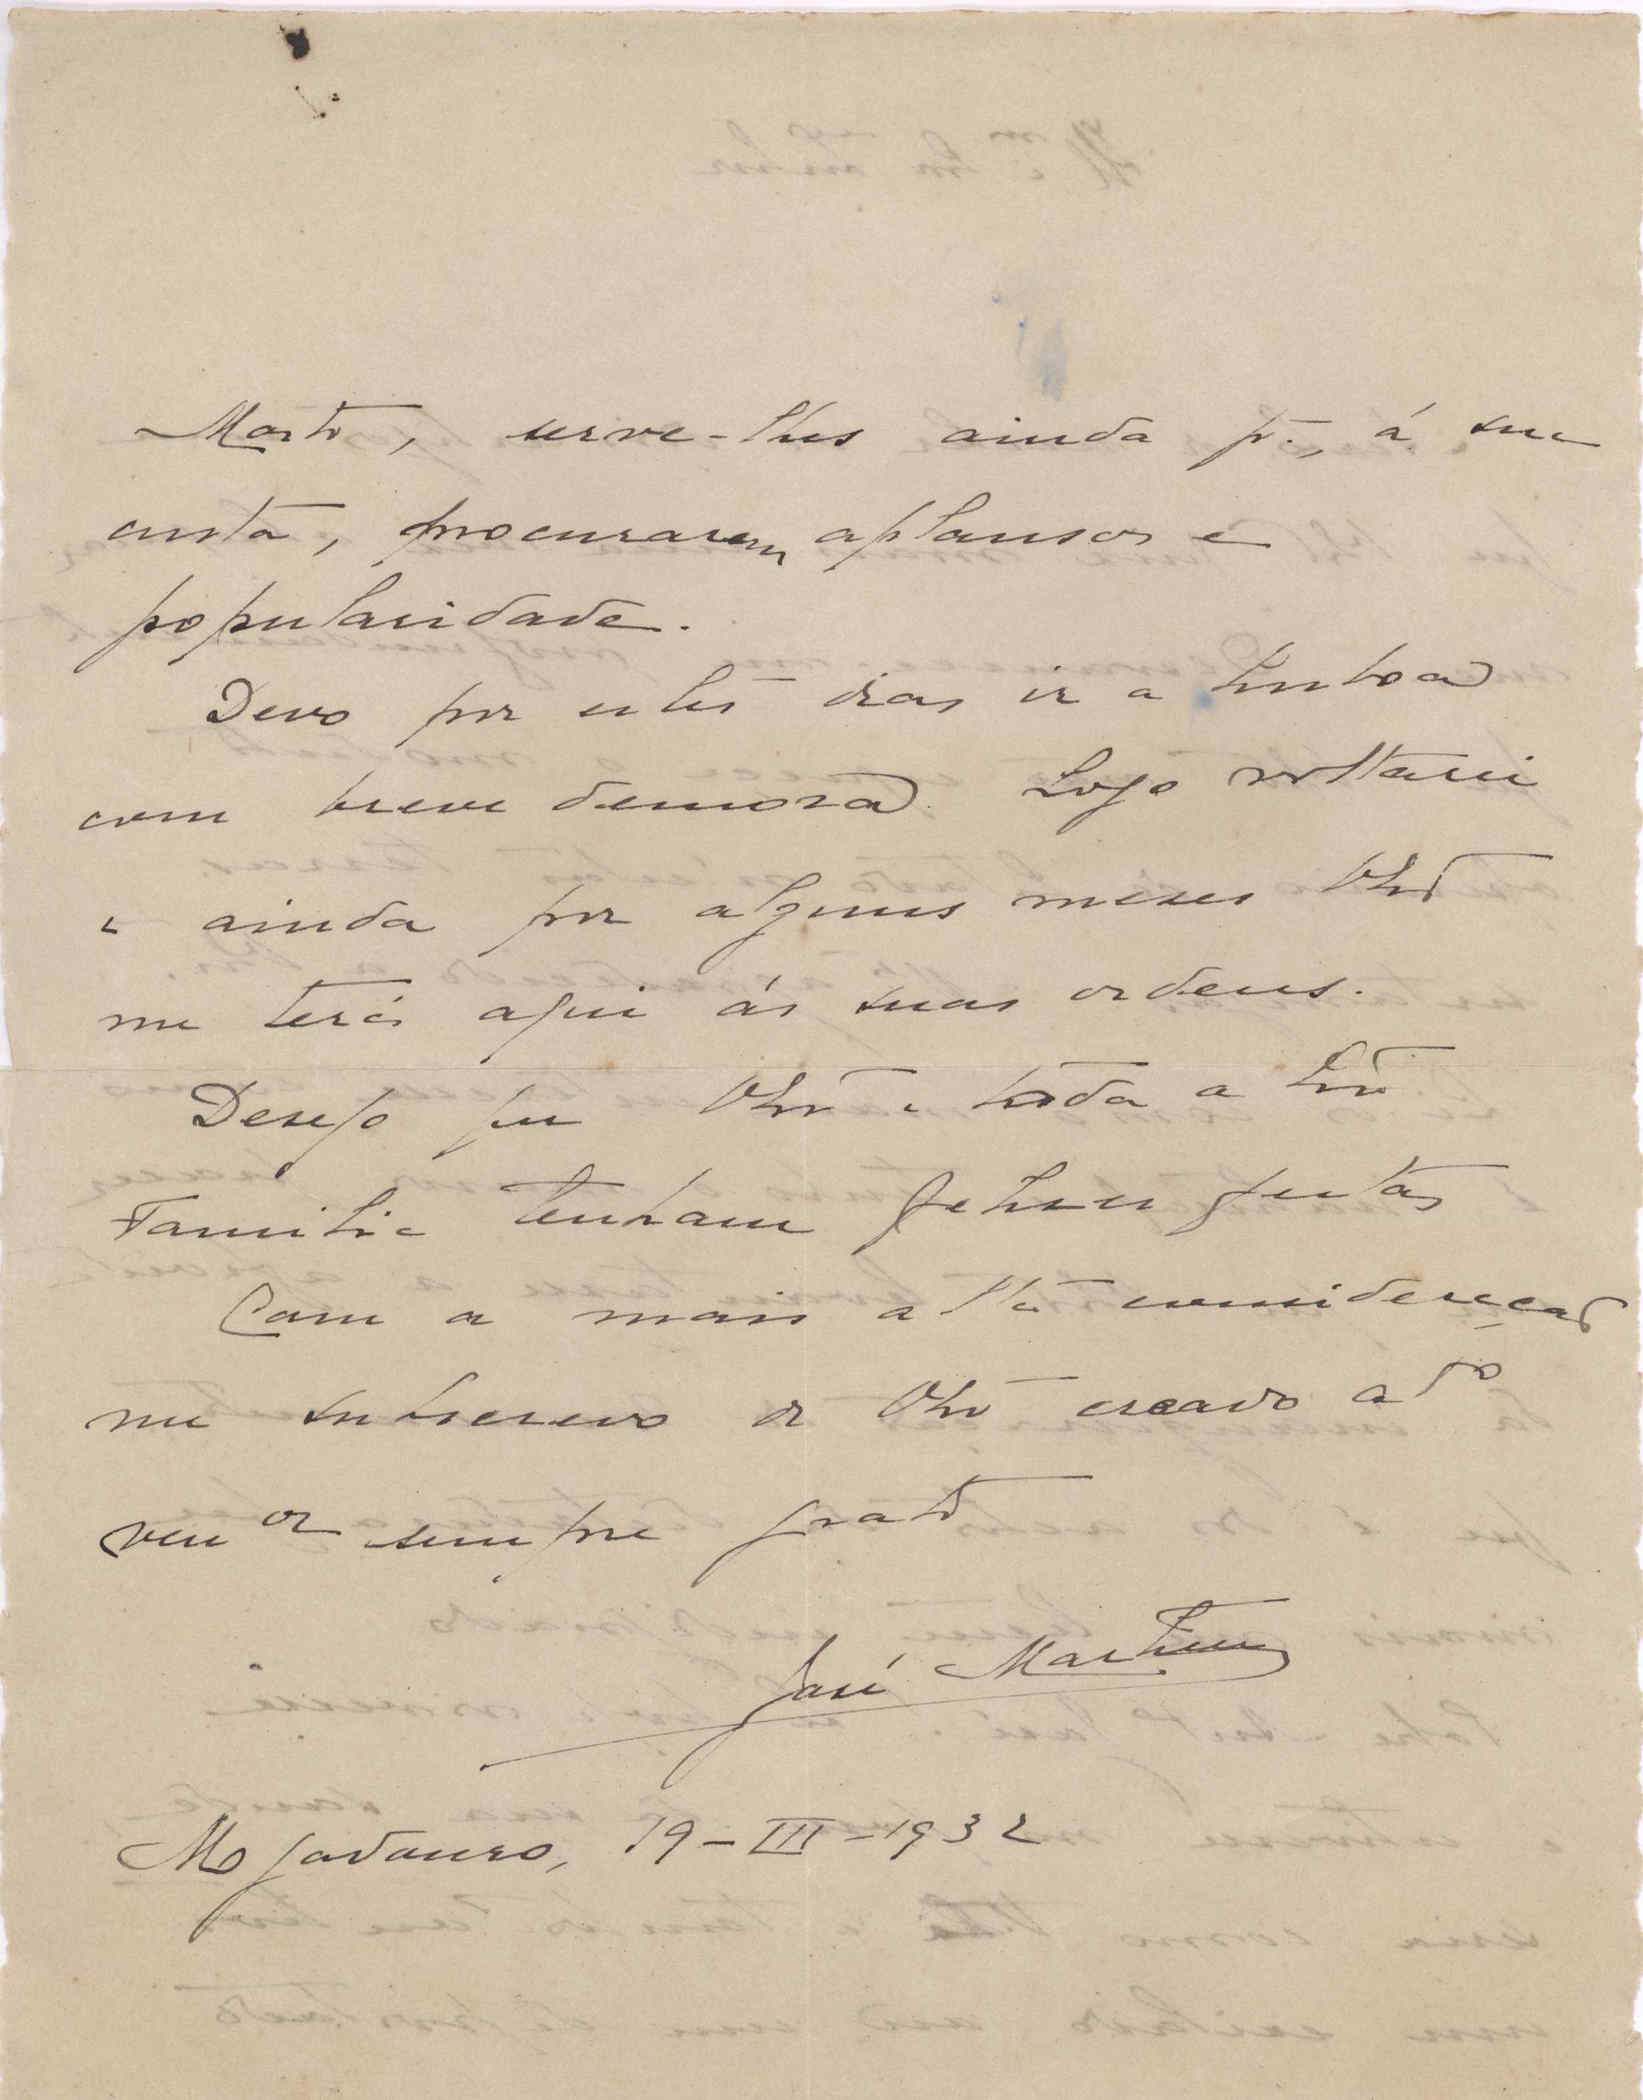 Morto, serve-lhes ainda p.ª, á sua
custa, procurarem aplausos e
popularidade.
Devo por estes dias ir a Lisboa
com breve demora. Logo voltarei
e ainda por alguns meses
me terá aqui ás suas ordens.
Desejo que e toda a
Familia tenham felizes festas
Com a mais alta consideração
me subscrevo de creado at.º
ven.or sempre grato
José Martins
Mogadouro, 19-III-1932